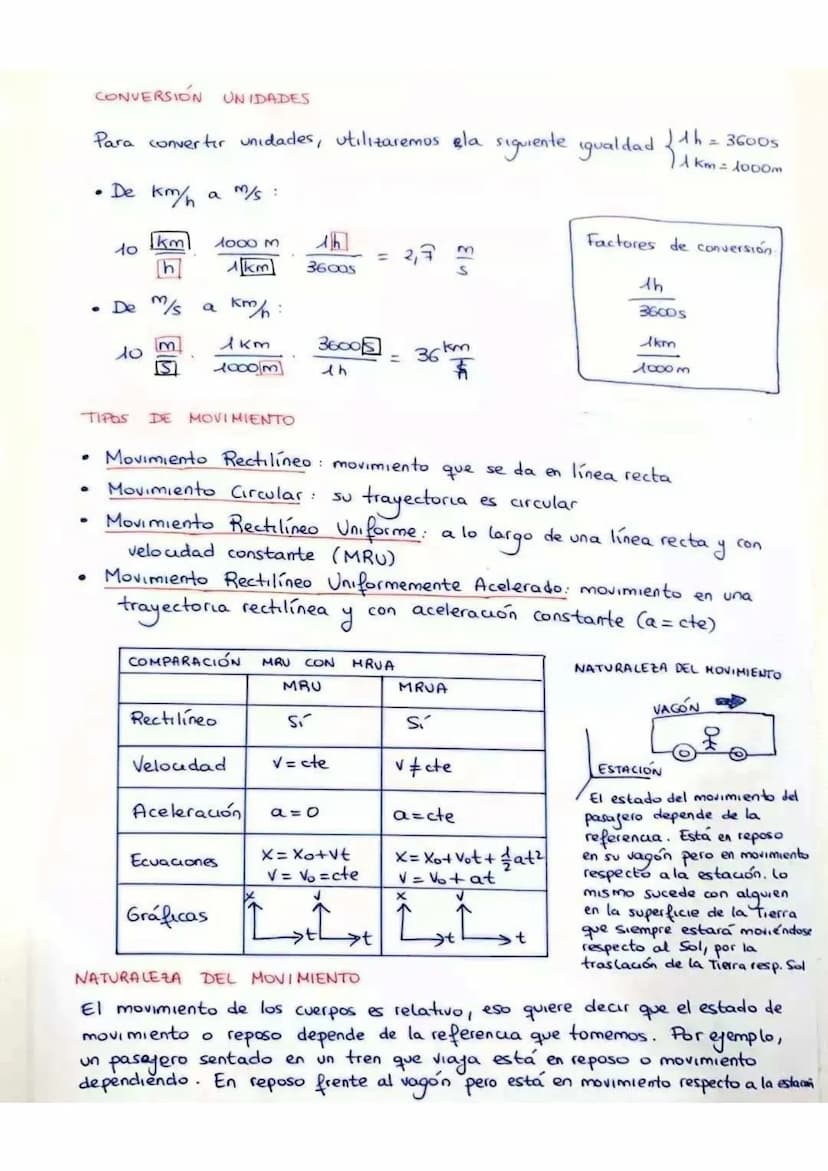 CONVERSIÓN UNIDADES
Para convertir unidades, utilizaremos la siguiente igualdad { 1h = 3600s
1 km = 1000m
• De km/h a m/s :
10 km/h · 1000 m/1 km · 1h/3600s = 2,7̂ m/s
• De m/s a km/h :
10 m/s · 1 km/1000 m · 3600 s/1h = 36 km/h
Factores de conversión
1h
3600s
1km
1000 m
TIPOS DE MOVIMIENTO
• Movimiento Rectilíneo : movimiento que se da en línea recta
• Movimiento Circular : su trayectoria es circular
• Movimiento Rectilíneo Uniforme : a lo largo de una línea recta y con
velocidad constante (MRU)
• Movimiento Rectilíneo Uniformemente Acelerado : movimiento en una
trayectoria rectilínea y con aceleración constante (a = cte)
COMPARACIÓN MRU CON MRUA
MRU MRUA
Rectilíneo Sí Sí
Velocidad v = cte v ≠ cte
Aceleración a = 0 a = cte
Ecuaciones x = x₀ + vt x = x₀ + v₀t + 1/2 at²
v = v₀ = cte v = v₀ + at
Gráficas x t v t x t v t
NATURALEZA DEL MOVIMIENTO
VAGÓN
ESTACIÓN
El estado del movimiento del
pasajero depende de la
referencia. Está en reposo
en su vagón pero en movimiento
respecto a la estación. Lo
mismo sucede con alguien
en la superficie de la Tierra
que siempre estará moviéndose
respecto al Sol, por la
traslación de la Tierra resp. Sol
NATURALEZA DEL MOVIMIENTO
El movimiento de los cuerpos es relativo, eso quiere decir que el estado de
movimiento o reposo depende de la referencia que tomemos. Por ejemplo,
un pasajero sentado en un tren que viaja está en reposo o movimiento
dependiendo. En reposo frente al vagón pero está en movimiento respecto a la estación